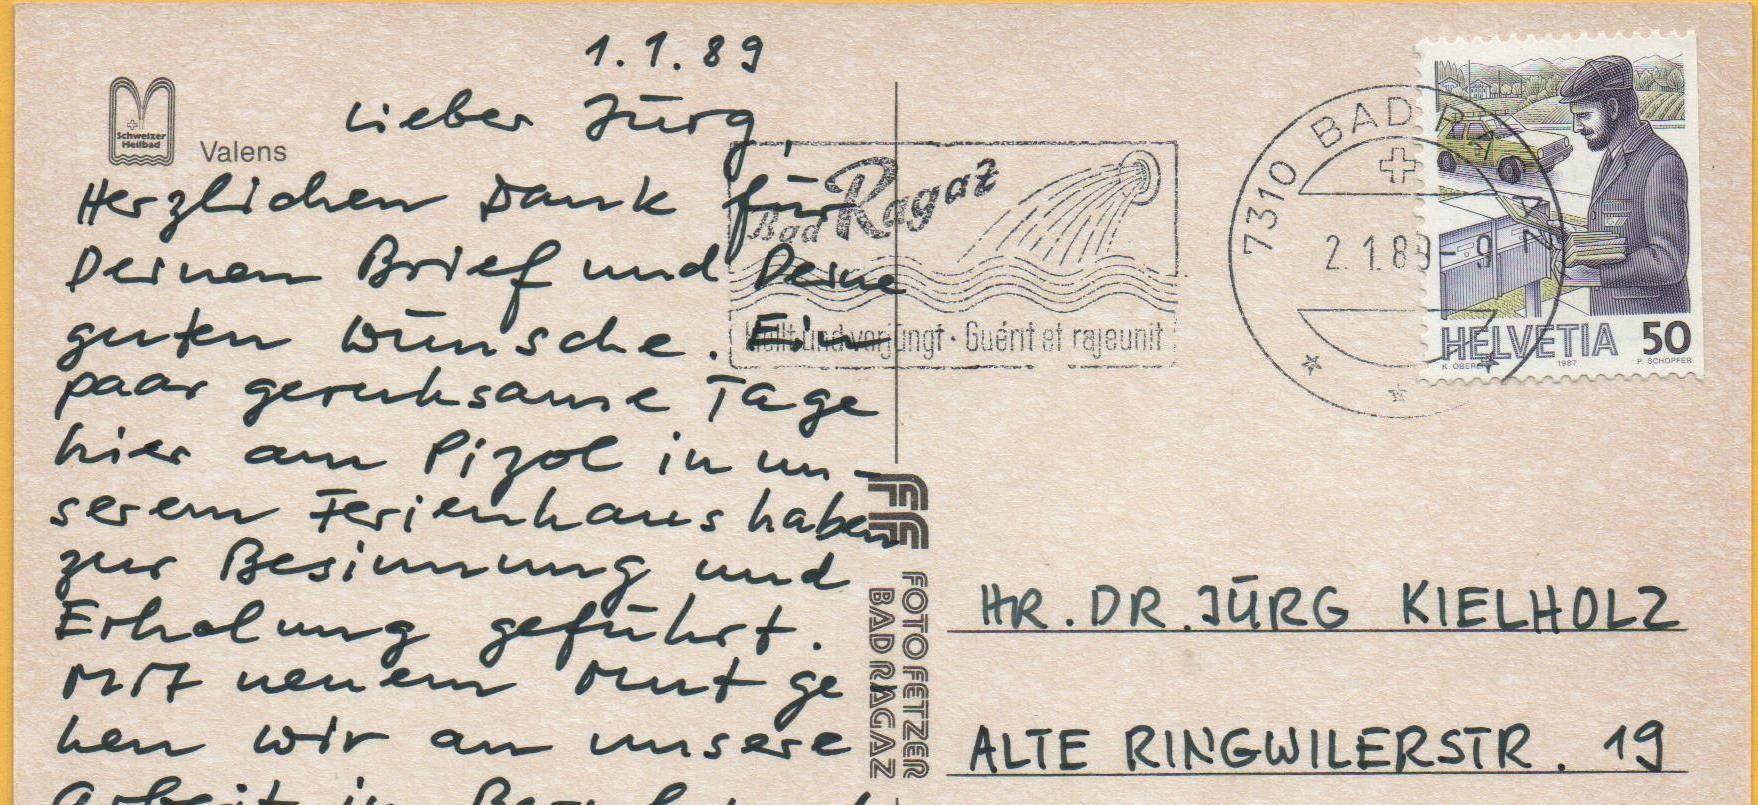 1.1.89
Lieber Jürg,
Herzlichen Dank für
Deinen Brief und Deine
guten Wünsche. Ein
paar geruhsame Tage
hier am Pizol in un-
serem Ferienhaus haben
zur Besinnung und
Erholung geführt.
Mit neuem Mut ge
hen wir an unsere
Arbeit in
Schweizer
Heilbad
Valens
Bad Ragaz
Heilt und verjüngt · Guérit et rajeunit
7310 BAD RAGAZ
2.1.89-9
HELVETIA 50
K. OBERLI 1987 P. SCHOPFER
FOTO FETZER
BAD RAGAZ
HR. DR. JÜRG KIELHOLZ
ALTE RINGWILERSTR. 19